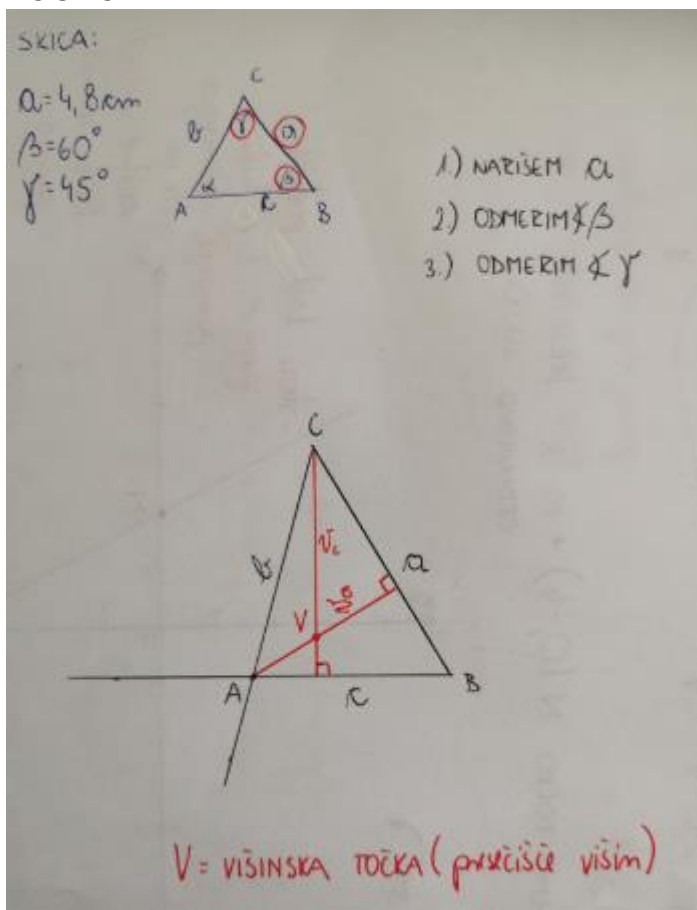 SKICA:
a=4,8cm
β=60°
γ=45°
C
b
γ
a
α
β
A
c
B
1.) NARIŠEM a
2.) ODMERIM ∢β
3.) ODMERIM ∢γ
C
b
vc
a
V
va
A
c
B
V= VIŠINSKA TOČKA (presečišče višin)